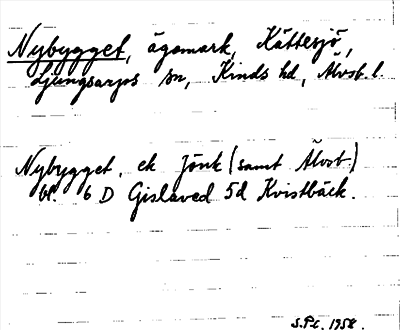 Nybygget, ägomark, Kättesjö,
Ljungsarps sn, Kinds hd, Älvsb. l.
Nybygget, ek Jönk (samt Älvsb.)
bl. 6 D Gislaved 5d Kvistbäck.
S.Pt. 1958.